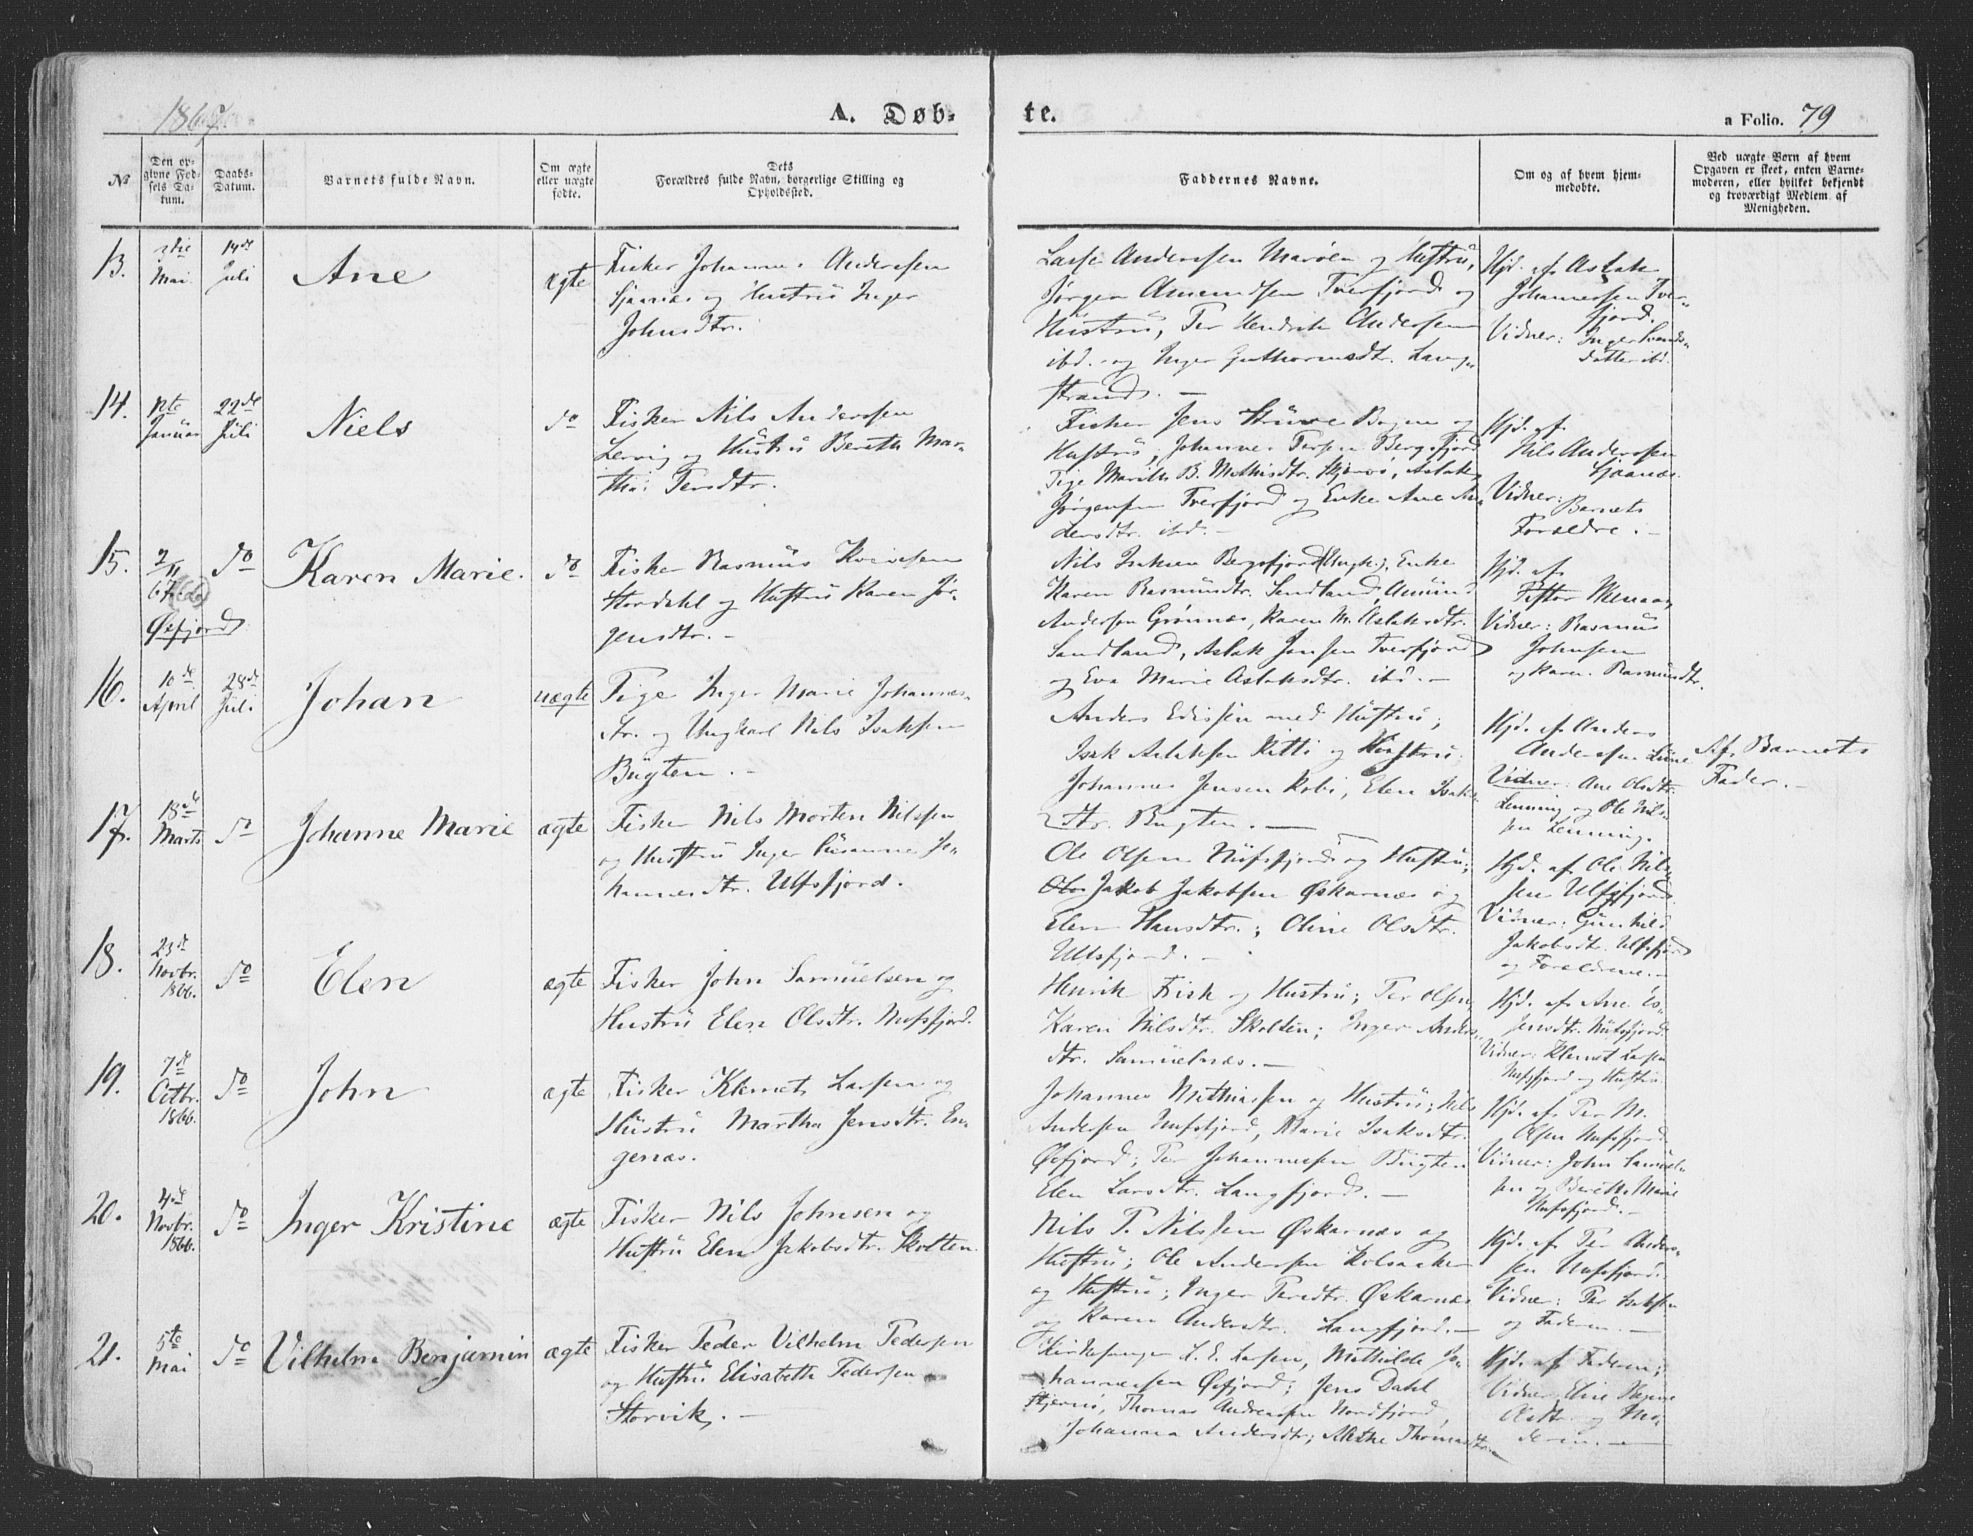 1867.
A. Døb-
te.
a Folio. 79
No
Den op-
givne Fød-
sels Da-
tum.
Daabs-
Datum.
Barnets fulde Navn.
Om ægte
eller uægte
fødte.
Dets
Forældres fulde Navn, borgerlige Stilling og
Opholdssted.
Faddernes Navne.
Om og af hvem hjem-
medøbte.
Ved uægte Børn af hvem
Opgaven er skeet, enten Barne-
moderen, eller hvilket bekjendt
og troværdigt Medlem af
Menigheden.
13.
3die
Mai
14de
Juli
Ane
ægte
Fisker Johannes Anderssen
Sjaanæs og Hustru Inger
Johnsdtr.
Lasse Anderssen Marøen og Hustru,
Jørgen Amundsen Tverfjord og
Hustru, Per Hendrik Andersen
ibd. og Inger Guthormsdtr. Lang-
strand. —
Hjd. af Aslak
Johannessen Tver-
fjord.
Vidner: Inger
datter ibd.
14.
Januar
22de
Juli
Niels
do
Fisker Nils Anderssen
Lervig og Hustru Bereth Mar-
tha Persdtr.
Fisker Jens Bogen og
Hustru, Johannes Persen Bergsfjord
Pige Marith B. Mathisdtr. Stjernø, Aslak
Jørgensen Tverfjord og Enke Ane An-
dersdtr. ibd. —
Hjd. af
Nils Anderssen
Sjaanæs.
Vidner:
Barnets
Forældre. —
15.
2/11
67 (66)
Øxfjord
do
Karen Marie.
do
Fisker Rasmus
Stordahl og Hustru Karen Jør-
gensdtr. —
Nils Isaksen Bergsfjord (Ungk.), Enke
Karen Rasmusdtr. Sandland Amund
Andersen Grønnæs, Karen M. Aslaksdtr.
Sandland, Aslak Jansen Tverfjord
og Eva Marie Aslaksdtr. ibd. —
Hjd. af
Vidner: Rasmus
Johnsen
og Karen Rasmusdtr.
16.
10de
April
28de
Juli
Johan
uægte
Pige Inger Marie Johannes-
dtr. og Ungkarl Nils Isaksen
Bugten. —
Anders Edissen med Hustru;
Isak Aslaksen Kitti og Hustru;
Johannes Jensen Kobi, Elen Isaks-
dtr. Bugten. —
Hjd. af Anders
Anderssen
Vidner: Ane Olsdtr.
og Ole Nils-
sen
Af Barnets
Fader. —
17.
18de
Marts
do
Johanne Marie
ægte
Fisker Nils Morten Nilssen
og Hustru Inger Susanna Jo-
hannesdtr. Ulfsfjord.
Ole Olsen Nufsfjord og Hustru;
Jakob Jakobsen Øskarnæs og
Elen Hansdtr.; Oline Olsdtr.
Ulfsfjord. —
Hjd. af Ole Nils-
sen Ulfsfjord
Vidner: Gunhild
Jakobsdtr. Ulfsfjord
og Forældrene. —
18.
23de
Novbr.
1866.
do
Elen
ægte
Fisker John Samuelsen og
Hustru Elen Olsdtr. Nufsfjord.
Henrik Fisk og Hustru; Per Olsen,
Karen Nilsdtr. Skolten; Inger Anders-
dtr. Samuelnæs. —
Hjd. af Ane
Jensdtr. Nufsfjord
Vidner: Klemet Larsen
Nufsfjord og Hustru.
19.
7de
Octbr.
1866.
do
John
ægte
Fisker Klemet Larsen og
Hustru Martha Jensdtr. En-
genæs.
Johannes Mathiassen og Hustru; Nils
Andersen Nufsfjord, Marie Isaksdtr.
Øxfjord; Per Johannessen Bugten
Elen Larsdtr. Langfjord. —
Hjd. af Per M.
Olsen Nufsfjord
Vidner: John Samuel-
sen og Bereth Marie
Nufsfjord. —
20.
4de
Novbr.
1866.
do
Inger Kristine
ægte
Fisker Nils Johnsen og
Hustru Elen Jakobsdtr. Skolten.
Nils P. Nilssen Øskarnæs og
Hustru; Ole Anderssen Kolsaaker
og Hustru; Inger Persdtr. Øskarnæs
og Karen Andersdtr. Langfjord. —
Hjd. af Per Anders-
sen Nufsfjord.
Vidner: Per Isaksen
og Faderen. —
21.
5te
Mai
do
Vilhelm Benjamin
ægte
Fisker Peder Vilhelm Pedersen
og Hustru Elisabeth Pedersen
Storvik. —
Kirkesanger L. E. Larsen, Mathilde Jo-
hannessen Øxfjord; Jens Dahl
Stjernø, Thomas Andreassen Nordfjord,
Johanna Andersdtr; Alethe Thomasdtr.
Hjd. af Faderen;
Vidner: Eline
Olsdtr. og Mo-
deren. —